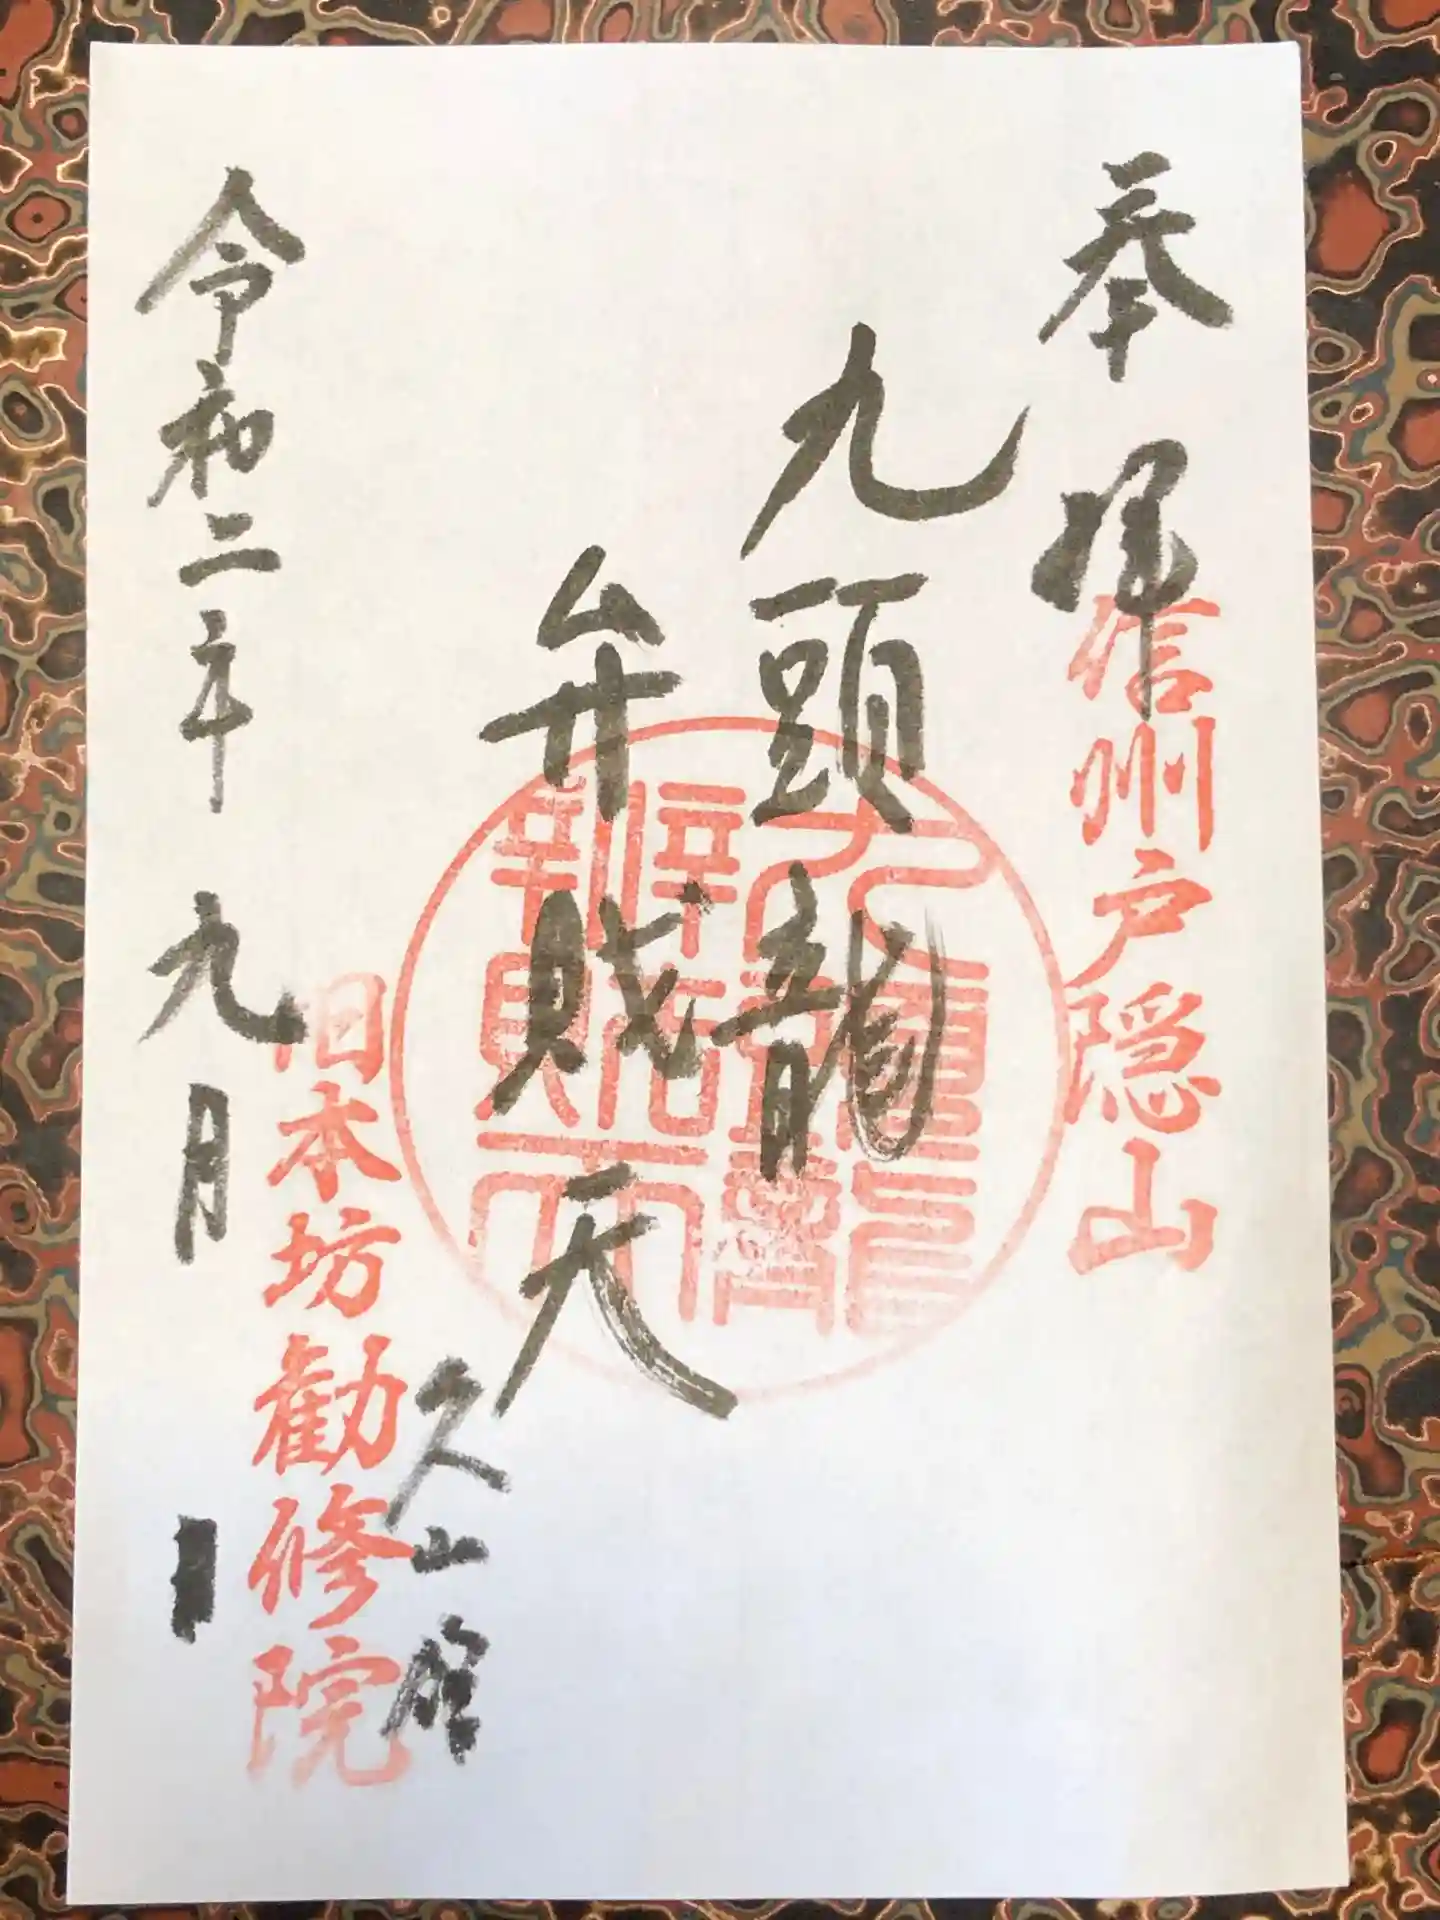 奉拝
信州戸隠山
九頭龍
弁財天
九頭龍
辨財天
久山館
旧本坊勧修院
令和二年九月